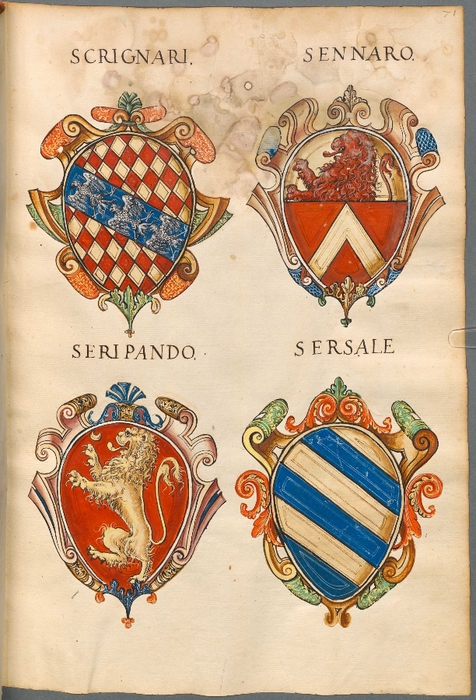 71
SCRIGNARI.
SENNARO.
SERIPANDO.
SERSALE